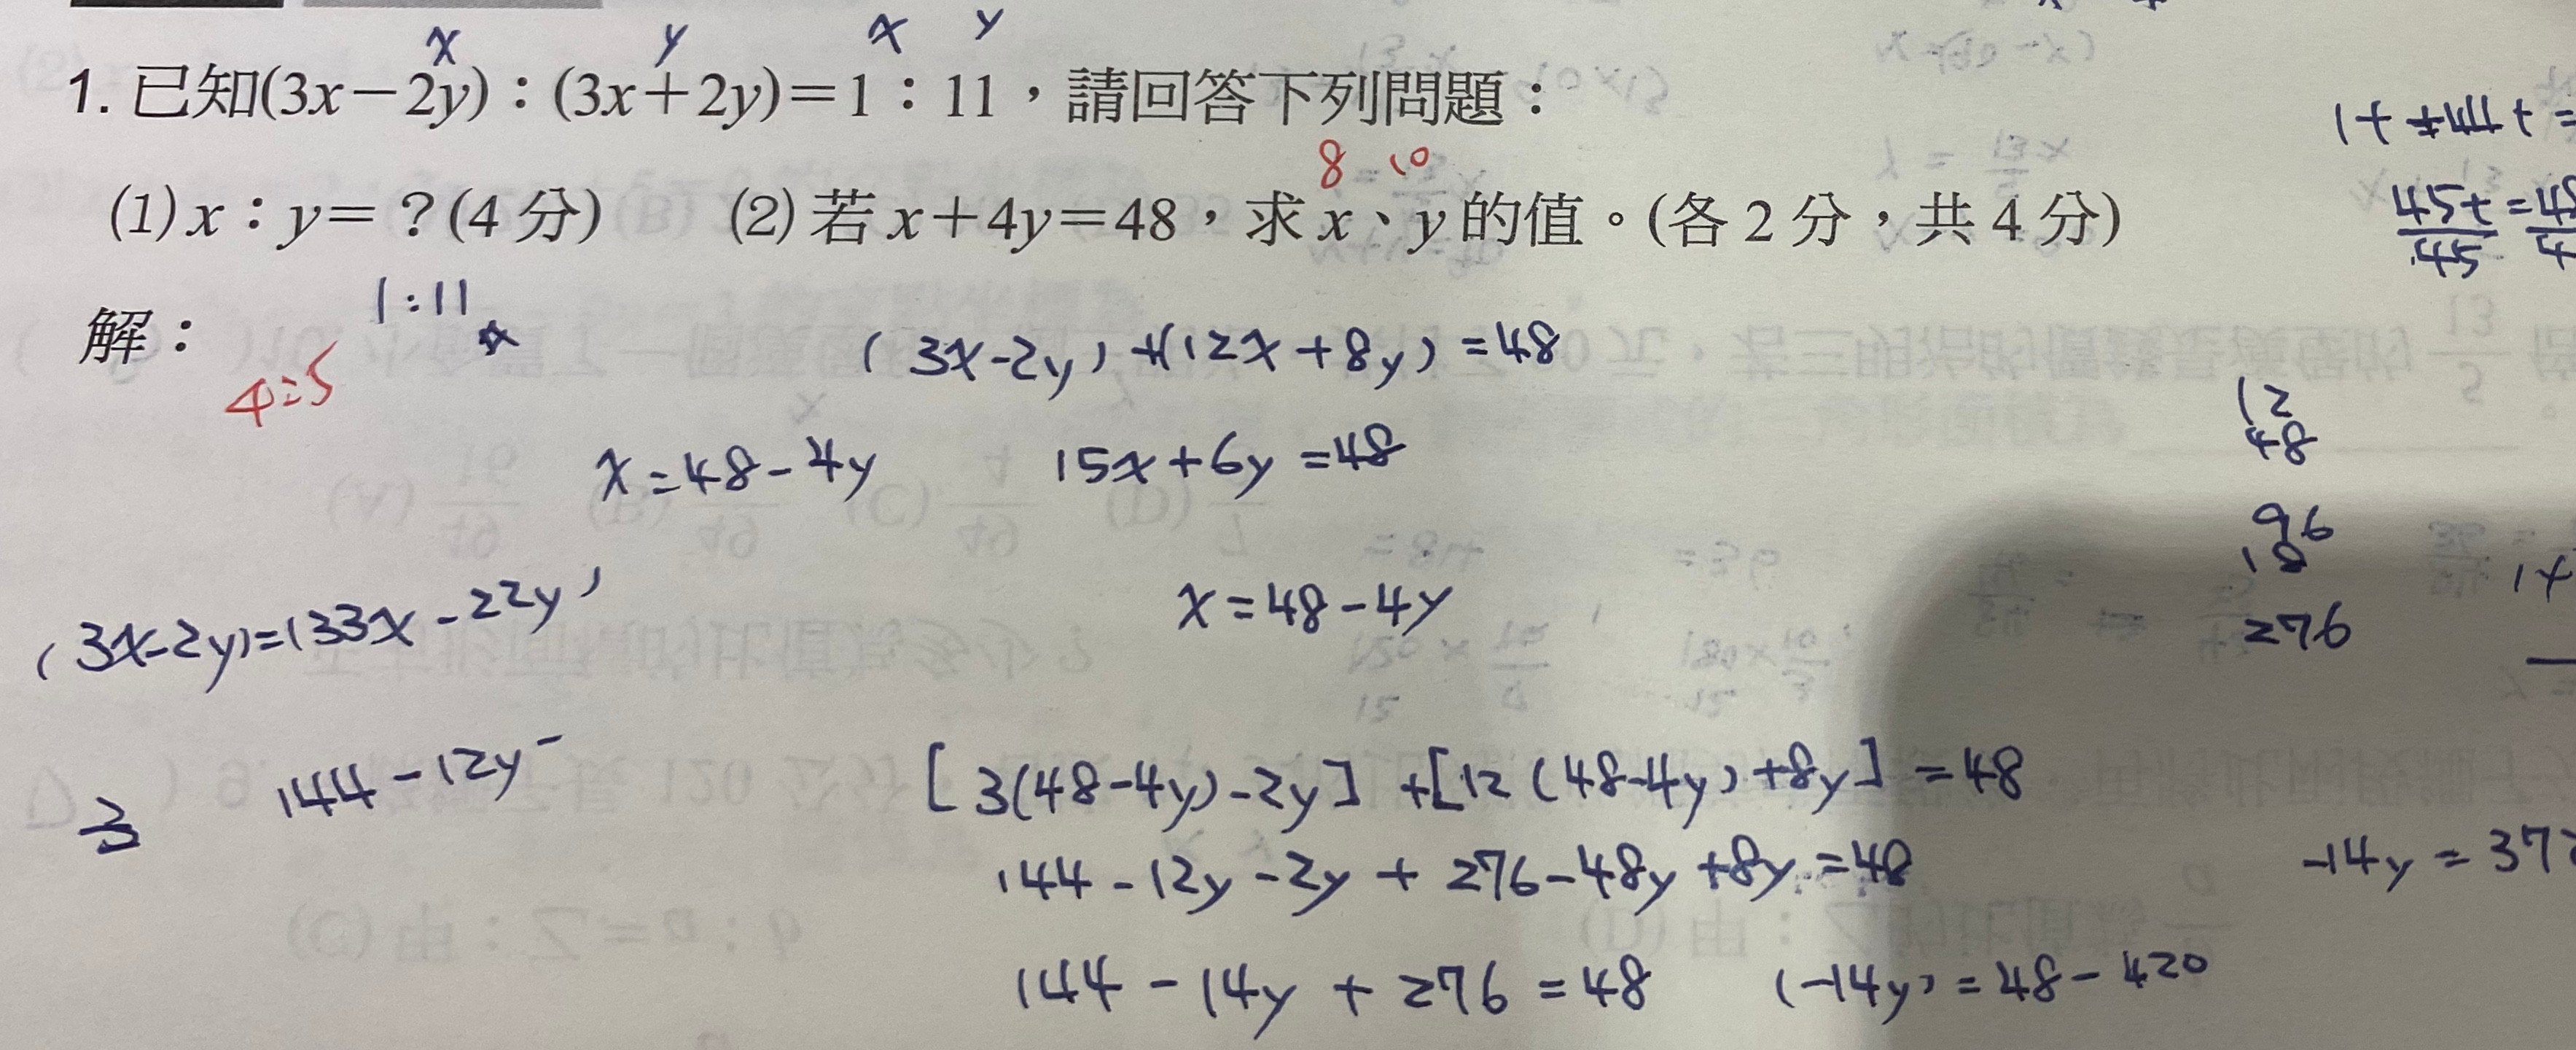 x y x y
1. 已知(3x－2y)：(3x＋2y)＝1：11，請回答下列問題：
8 10
(1) x：y＝？(4 分) (2) 若 x＋4y＝48，求 x、y 的值。(各 2 分，共 4 分)
解：
1:11
4:5
(3x-2y)+(12x+8y)=48
x=48-4y
15x+6y=48
(3x-2y)=(33x-22y)
x=48-4y
144-12y-
[3(48-4y)-2y]+[12(48-4y)+8y]=48
144-12y-2y+276-48y+8y=48
144-14y+276=48
(-14y)=48-420
45t=48
45
12
48
96
18
276
-14y=372